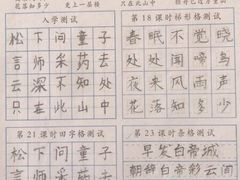 花落知多少 更上一层楼 只在此山中
入学测试
松下问童子
言师采药去
云深不知处
只在此山中
第18课时梯形格测试
春眠不觉晓
处处闻啼鸟
夜来风雨声
花落知多少
第21课时田字格测试
松下问童子
言师采药去
第23课时条格测试
早发白帝城
朝辞白帝彩云间